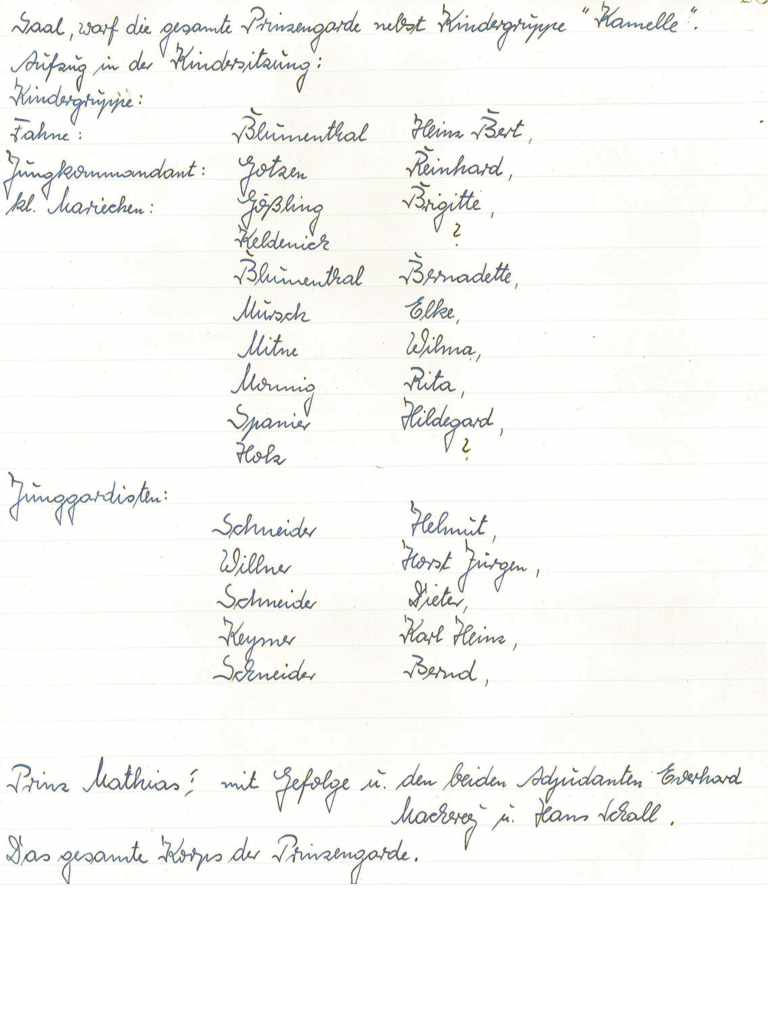 Saal, warf die gesamte Prinzengarde nebst Kindergruppe "Kamelle".
Aufzug in der Kindersitzung:
Kindergruppe:
Fahne: Blumenthal Heinz Bert,
Jungkommandant: Gotzen Reinhard,
kl. Mariechen: Gößling Brigitte,
Keldenich ?
Blumenthal Bernadette,
Mürsch Elke,
Mitne Wilma,
Monnig Rita,
Spanier Hildegard,
Holz ?
Junggardisten:
Schneider Helmut,
Willner Horst Jürgen,
Schneider Dieter,
Keymer Karl Heinz,
Schneider Bernd,
Prinz Mathias mit Gefolge u. den beiden Adjudanten Everhard
u. Hans Schall.
Das gesamte Korps der Prinzengarde.